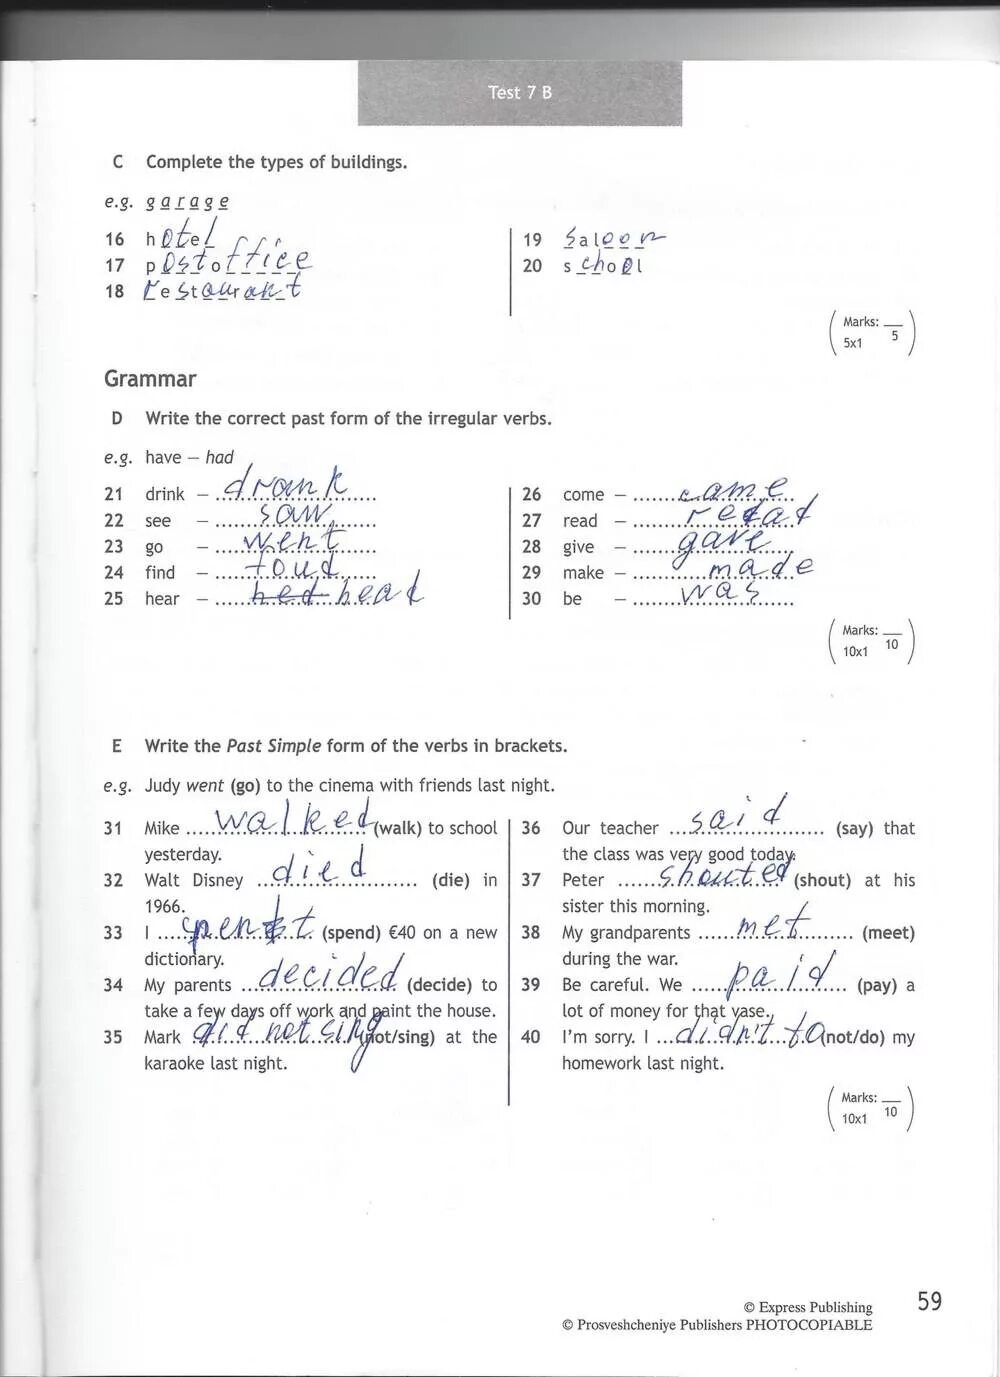 Test 7 B
C Complete the types of buildings.
e.g. garage
16 hotel
17 post office
18 restaurant
19 saloon
20 school
(Marks: __ 5x1 5)
Grammar
D Write the correct past form of the irregular verbs.
e.g. have – had
21 drink – drank
22 see – saw
23 go – went
24 find – foud
25 hear – hed head
26 come – came
27 read – read
28 give – gave
29 make – made
30 be – was
(Marks: __ 10x1 10)
E Write the Past Simple form of the verbs in brackets.
e.g. Judy went (go) to the cinema with friends last night.
31 Mike walked (walk) to school
yesterday.
32 Walt Disney died (die) in
1966.
33 I spent (spend) €40 on a new
dictionary.
34 My parents decided (decide) to
take a few days off work and paint the house.
35 Mark did not sing (not/sing) at the
karaoke last night.
36 Our teacher said (say) that
the class was very good today.
37 Peter shouted (shout) at his
sister this morning.
38 My grandparents met (meet)
during the war.
39 Be careful. We paid (pay) a
lot of money for that vase.
40 I'm sorry. I didn't (not/do) my
homework last night.
(Marks: __ 10x1 10)
© Express Publishing
© Prosveshcheniye Publishers PHOTOCOPIABLE
59